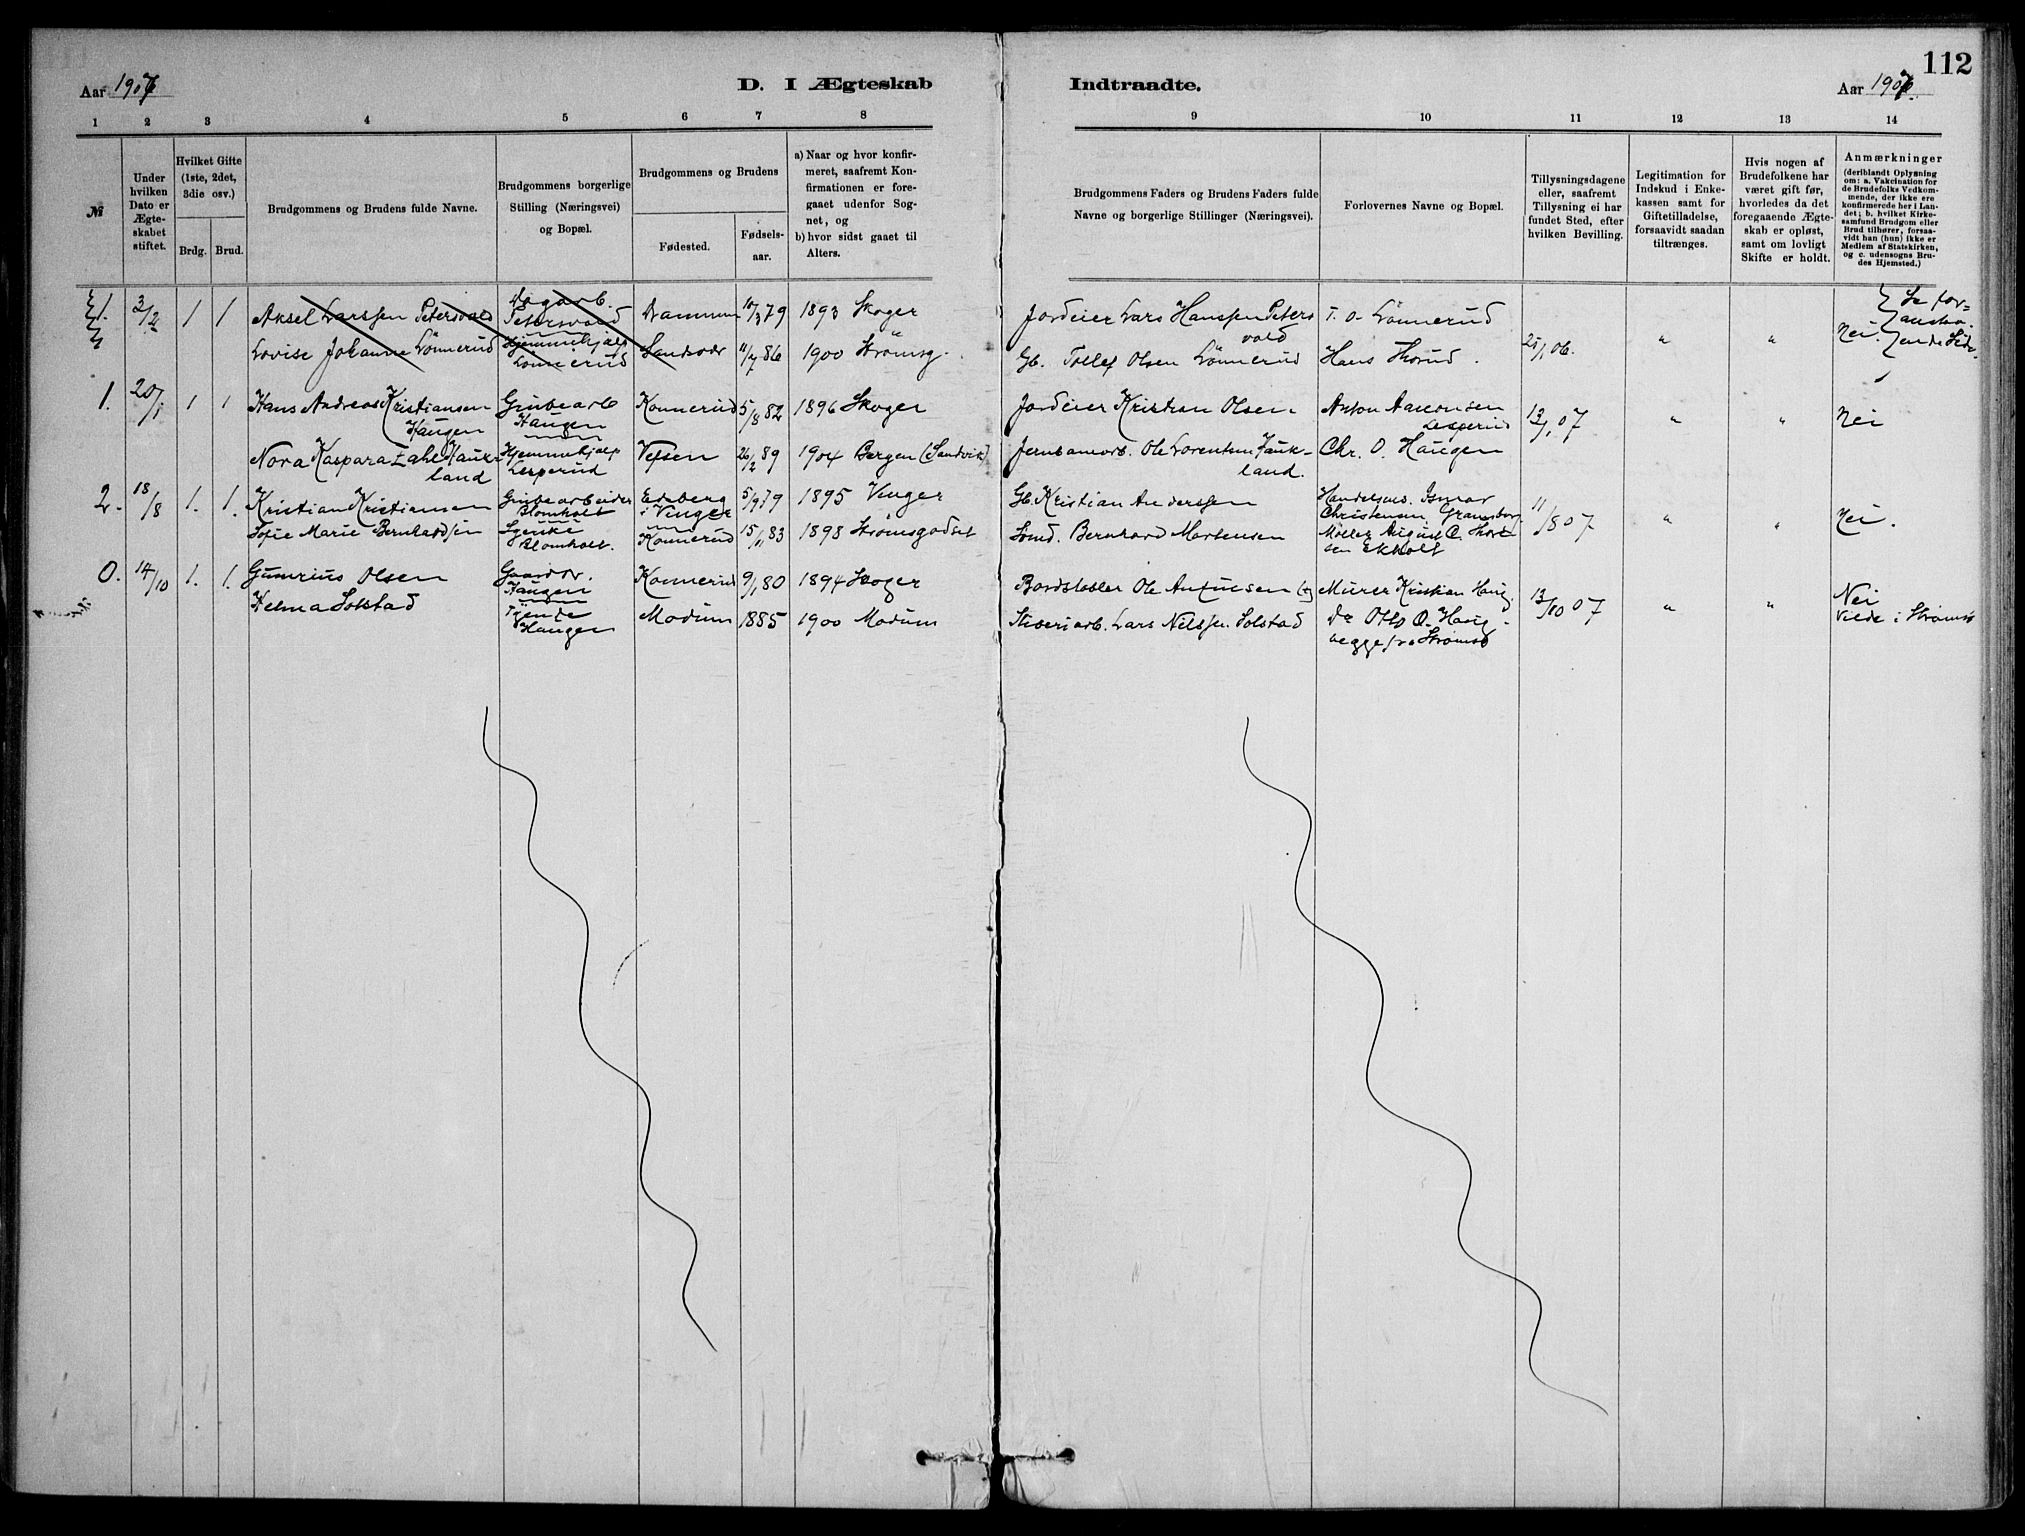 112
Aar 1907
D. I Ægteskab
Indtraadte.
Aar 1907.
1 2 3 4 5 6 7 8 9 10 11 12 13 14
№
Under hvilken Dato er Ægteskabet stiftet.
Hvilket Gifte (1ste, 2det, 3die osv.)
Brdg. Brud.
Brudgommens og Brudens fulde Navne.
Brudgommens borgerlige Stilling (Næringsvei) og Bopæl.
Brudgommens og Brudens
Fødested. Fødsels-aar.
a) Naar og hvor konfirmeret, saafremt Konfirmationen er foregaaet udenfor Sognet, og
b) hvor sidst gaaet til Alters.
Brudgommens Faders og Brudens Faders fulde Navne og borgerlige Stillinger (Næringsvei).
Forlovernes Navne og Bopæl.
Tillysningsdagene eller, saafremt Tillysning ei har fundet Sted, efter hvilken Bevilling.
Legitimation for Indskud i Enkekassen samt for Giftetilladelse, forsaavidt saadan tiltrænges.
Hvis nogen af Brudefolkene har været gift før, hvorledes da det foregaaende Ægteskab er opløst, samt om lovligt Skifte er holdt.
Anmærkninger (deriblandt Oplysning om: a. Vakcination for de Brudefolks Vedkommende, der ikke ere konfirmerede her i Landet; b. hvilket Kirkesamfund Brudgom eller Brud tilhører, forsaavidt han (hun) ikke er Medlem af Statskirken, og c. udensogns Brudes Hjemsted.)
1. 3/2 1 1 Aksel Larssen Petersvold Dagarb. Petersvold Drammen 10/3 79 1893 Skoger Jordeier Lars Hanssen Petersvold T. O. Lönnerud
Lovise Johanne Lönnerud Hjemmehjælp Lönnerud Sandsvær 11/7 86 1900 Strömsg. Gb. Tollef Olsen Lönnerud Hans Thorud. 21/1 06. " " Nei. Se foranstaaende Side.
1. 20/1 1 1 Hans Andreas Kristiansen Haugen Grubearb Haugen Konnerud 5/8 82 1896 Skoger Jordeier Kristian Olsen. Anton Aamonsen Lesperud 13/1 07 " " Nei
Nora Kaspara Zahl Haukland Hjemmehjælp Lesperud Vefsen 26/2 89 1904 Bergen (Sandvik) Jernbanearb. Ole Lorentsen Haukland. Chr. O. Haugen
2. 18/8 1. 1. Kristian Kristiansen Grubearbeider Blomholt Edsberg i Vinger 5/9 79 1895 Vinger Gb. Kristian Anderssen Handelsms. Ismar Christensen Gransborg 11/8 07 " " Nei.
Sofie Marie Bernhardsen Syerske Blomholt. Konnerud 15/11 83 1898 Strømsgodset Smd. Bernhard Mortensen Möller August O. Thorsen Ekholt
0. 14/10 1. 1. Gunerius Olsen Gaardbr. Haugen Konnerud 9/1 80 1894 Skoger Bordstabler Ole Antonsen (+) Murer Kristian Haug. 13/10 07 " " Nei
Helma Solstad Tjente Haugen Modum 1885 1900 Modum Sliberiarb. Lars Nilssen Solstad Do Otto O. Haug. begge fra Strömsö Viede i Strömsö